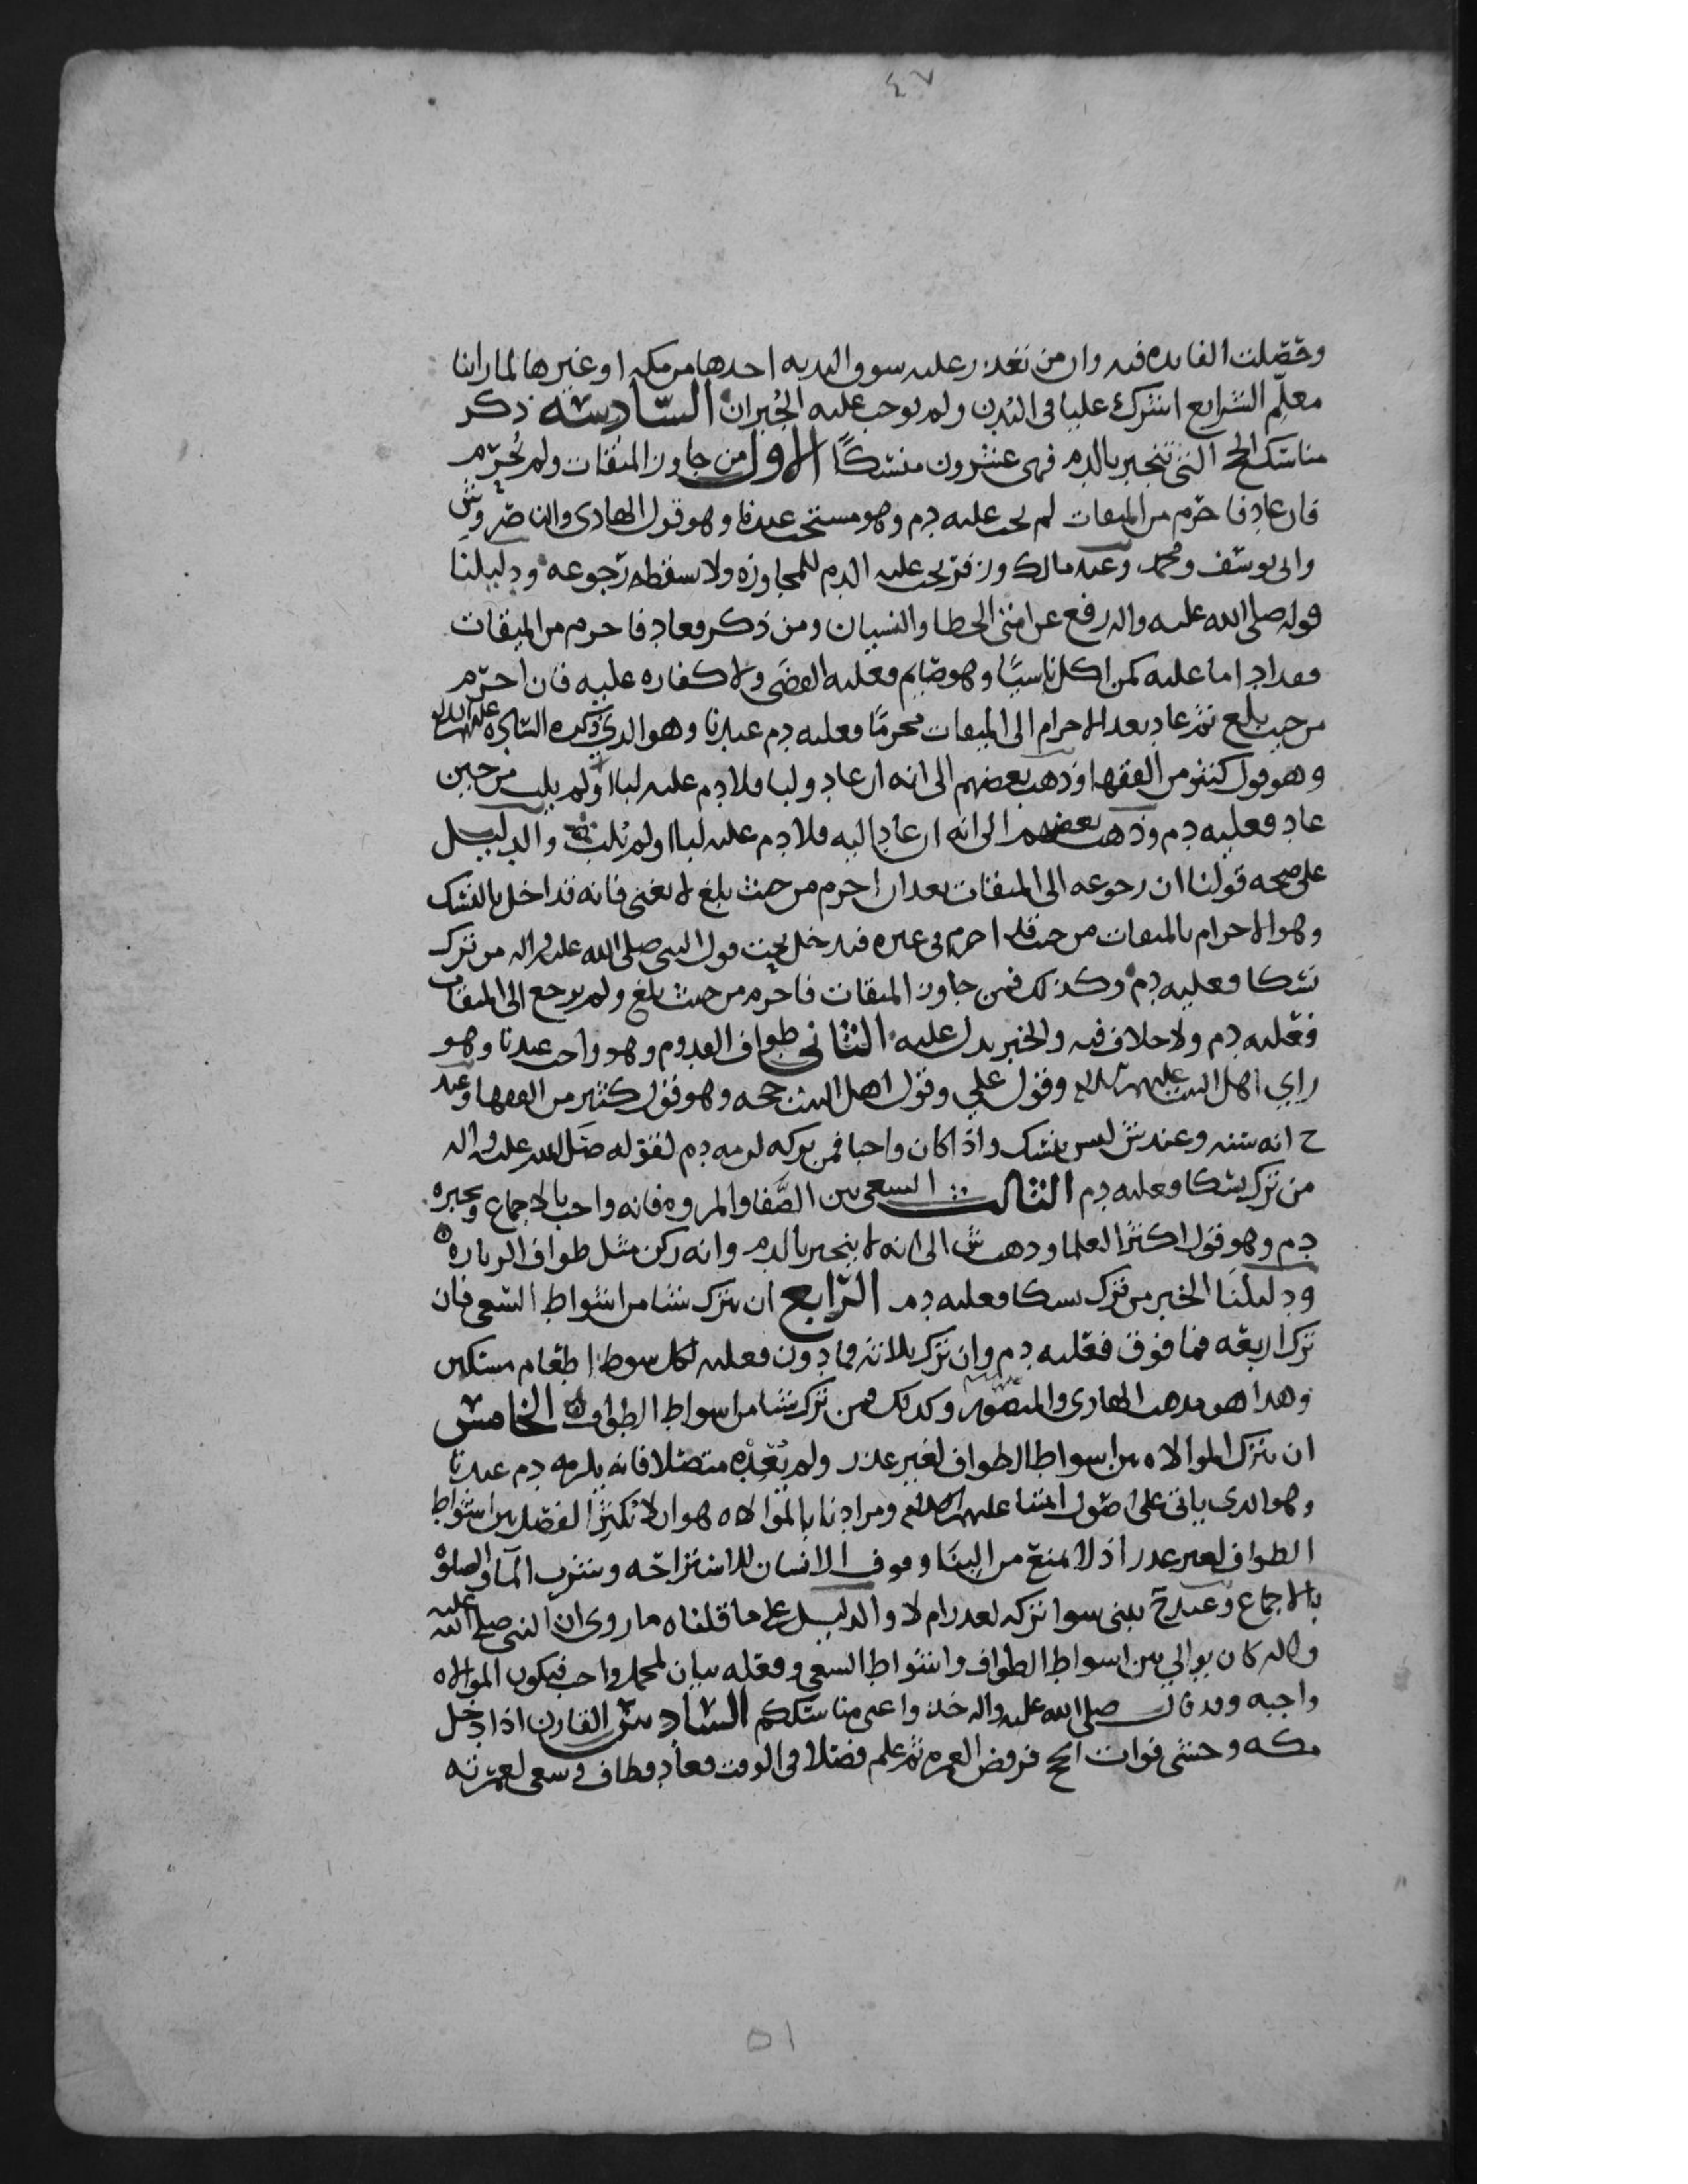 ٤٧
وحصلت الفايده فيه وان من تعذر عليه سوق البدنه احدها من مكه او غيرها لما راينا
معلم الشرايع اشرك عليا في البدن ولم يوجب عليه الجبران السادسه ذكر
مناسك الحج التي تنجبر بالدم فهي عشرون منسكًا الاول من جاوز الميقات ولم يحرم
فان عاد فاحرم من الميقات لم يجب عليه دم وهو مستحب عندنا وهو قول الهادي والناصر وش
وابي يوسف ومحمد وعند مالك وزفر يجب عليه الدم للمجاوزه ولا يسقطه رجوعه ودليلنا
قوله صلى الله عليه واله رفع عن امتي الخطا والنسيان ومن ذكر وعاد فاحرم من الميقات
فقد ادا ما عليه كمن اكل ناسيًا وهو صايم فعليه القضى ولا كفاره عليه فان احرم
من حيث بلغ ثم عاد بعد الاحرام الى الميقات محرمًا فعليه دم عندنا وهو الذي ذكره الساده عليهم السلام
وهو قول كثير من الفقها وذهب بعضهم الى انه ان عاد ولبا فلا دم عليه لبا او لم يلب من حين
عاد فعليه دم وذهب بعضهم الى انه ان عاد اليه فلا دم عليه لبا او لم يلب والدليل
على صحه قولنا ان رجوعه الى الميقات بعد ان احرم من حيث بلغ لا يغني فانه قد اخل بالنسك
وهو الاحرام بالميقات من حيث قد احرم في غيره فيدخل تحت قول النبي صلى الله عليه واله من ترك
نسكا فعليه دم وكذلك فمن جاوز الميقات فاحرم من حيث بلغ ولم يرجع الى الميقات
فعليه دم ولا خلاف فيه والخبر يدل عليه الثاني طواف القدوم وهو واجب عندنا وهو
راي اهل البيت عليهم السلام وقول علي وقول اهل البيت حجه وهو قول كثير من الفقها وعند
ح انه سنه وعند ش ليس بنسك واذا كان واجبا فمن تركه لزمه دم لقوله صلى الله عليه واله
من ترك نسكا فعليه دم الثالث السعي بين الصفا والمروه فانه واجب بالاجماع ويجبره
دم وهو قول اكثر العلما وذهب ش الى انه لا ينجبر بالدم وانه ركن مثل طواف الزياره
ودليلنا الخبر من ترك نسكا فعليه دم الرابع ان يترك شيا من اشواط السعي فان
ترك اربعه فما فوق فعليه دم وان ترك ثلاثه فما دون فعليه لكل شوط اطعام مسكين
وهذا هو مذهب الهادي والمنصور وكذلك فمن ترك شيا من اشواط الطواف الخامس
ان يترك الموالاه بين اشواط الطواف لغير عذر ولم يعده متصلا فانه يلزمه دم عندنا
وهو الذي ياتي على اصول ائمتنا عليهم السلام ومرادنا بالموالاه هو ان لا يكثر الفصل بين اشواط
الطواف لغير عذر اذ لا يمنع من البنا وقوف الانسان للاستراحه وشرب الما والصلوه
بالاجماع وعند ح يبني سوا تركه لعذر ام لا والدليل على ما قلناه ما روي ان النبي صلى الله عليه
واله كان يوالي بين اشواط الطواف واشواط السعي وفعله بيان لمجمل واجب فيكون الموالاه
واجبه وقد قال صلى الله عليه واله خذوا عني مناسككم السادس القارن اذا دخل
مكه وخشي فوات الحج فرفض العمره ثم علم فضلا في الوقت فعاد فطاف وسعى لعمرته
٥١